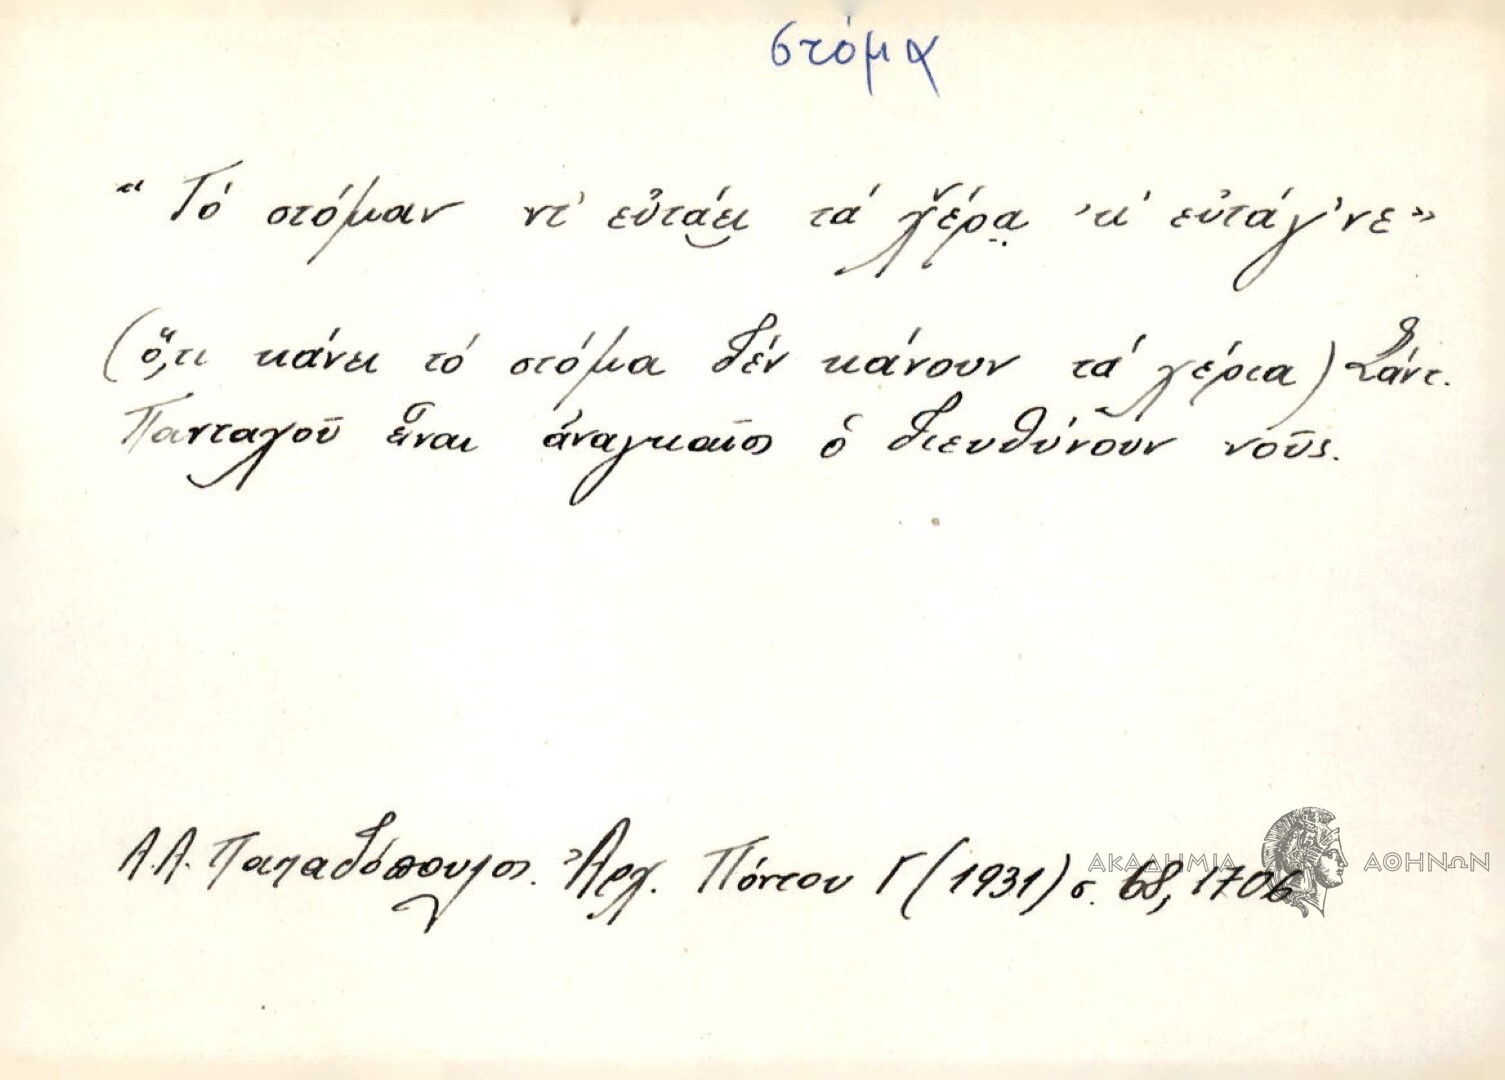 στόμα
"Τό στόμαν ντ' εὐτάει τά χ̌έρα̤ 'κ' εὐτάγ'νε"
(ὅ,τι κάνει τό στόμα δέν κάνουν τά χέρια) Σάντ.
Πανταχοῦ εἶναι ἀναγκαῖος ὁ διευθύνουν νοῦς.
Α.Α. Παπαδόπουλος. Ἀρχ. Πόντου Γ (1931) σ. 68, 1706
ΑΚΑΔΗΜΙΑ ΑΘΗΝΩΝ